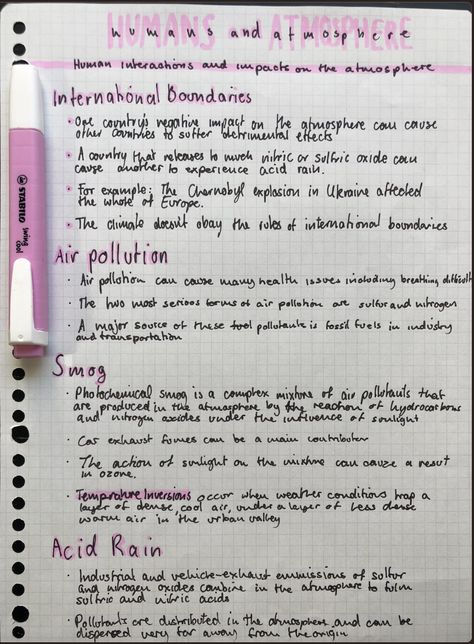 HUMANS ATMOSPHERE
humans and atmosphere
Human interactions and impacts on the atmosphere
International Boundaries
• One country's negative impact on the atmosphere can cause
other countries to suffer detrimental effects
• A country that releases to much nitric or sulfric oxide can
cause another to experience acid rain.
• For example: The Chernobyl explosion in Ukraine affected
the whole of Europe.
• The climate doesn't obay the rules of international boundaries
Air pollution
• Air pollution can cause many health issues including breathing difficult
• The two most serious forms of air pollution are sulfur and nitrogen
• A major source of these two pollutants is fossil fuels in industry
and transportation
Smog
• Photochemical smog is a complex mixture of air pollutants that
are produced in the atmosphere by the reaction of hydrocarbons
and nitrogen oxides under the influence of sunlight
• Car exhaust fumes can be a main contributer
• The action of sunlight on the mixture can cause a result
in ozone.
• Temperature Inversions occur when weather conditions trap a
layer of dense, cool air, under a layer of less dense
warm air in the urban valley
Acid Rain
• Industrial and vehicle-exhaust emmissions of sulfur
and nitrogen oxides combine in the atmosphere to form
sulfric and nitric acids
• Pollutants are distributed in the atmosphere and can be
dispersed very far away from the origin
STABILO
swing
cool